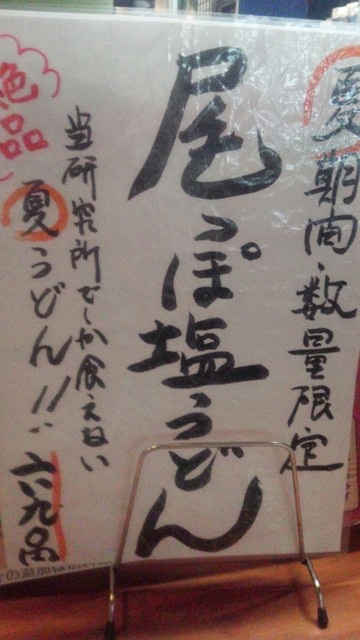 夏期間・数量限定
尾っぽ塩うどん
当研究所でしか食えない
夏うどん!!
絶品